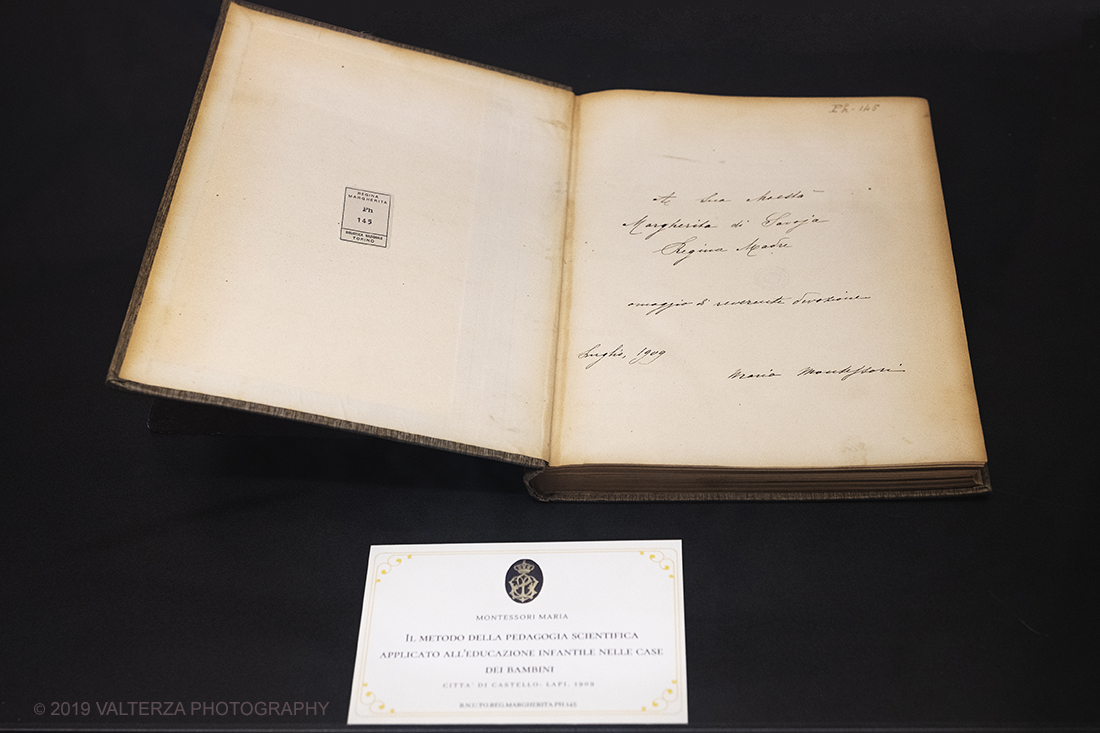 REGINA
MARGHERITA
Ph
145
BIBLIOTECA NAZIONALE
TORINO
Ph - 145
A Sua Maestà
Margherita di Savoja
Regina Madre
omaggio di reverente devozione
Luglio, 1909
Maria Montessori
MONTESSORI MARIA
IL METODO DELLA PEDAGOGIA SCIENTIFICA
APPLICATO ALL'EDUCAZIONE INFANTILE NELLE CASE
DEI BAMBINI
CITTA' DI CASTELLO: LAPI, 1909
B.N.U.TO.REG.MARGHERITA.PH.145
© 2019 VALTERZA PHOTOGRAPHY